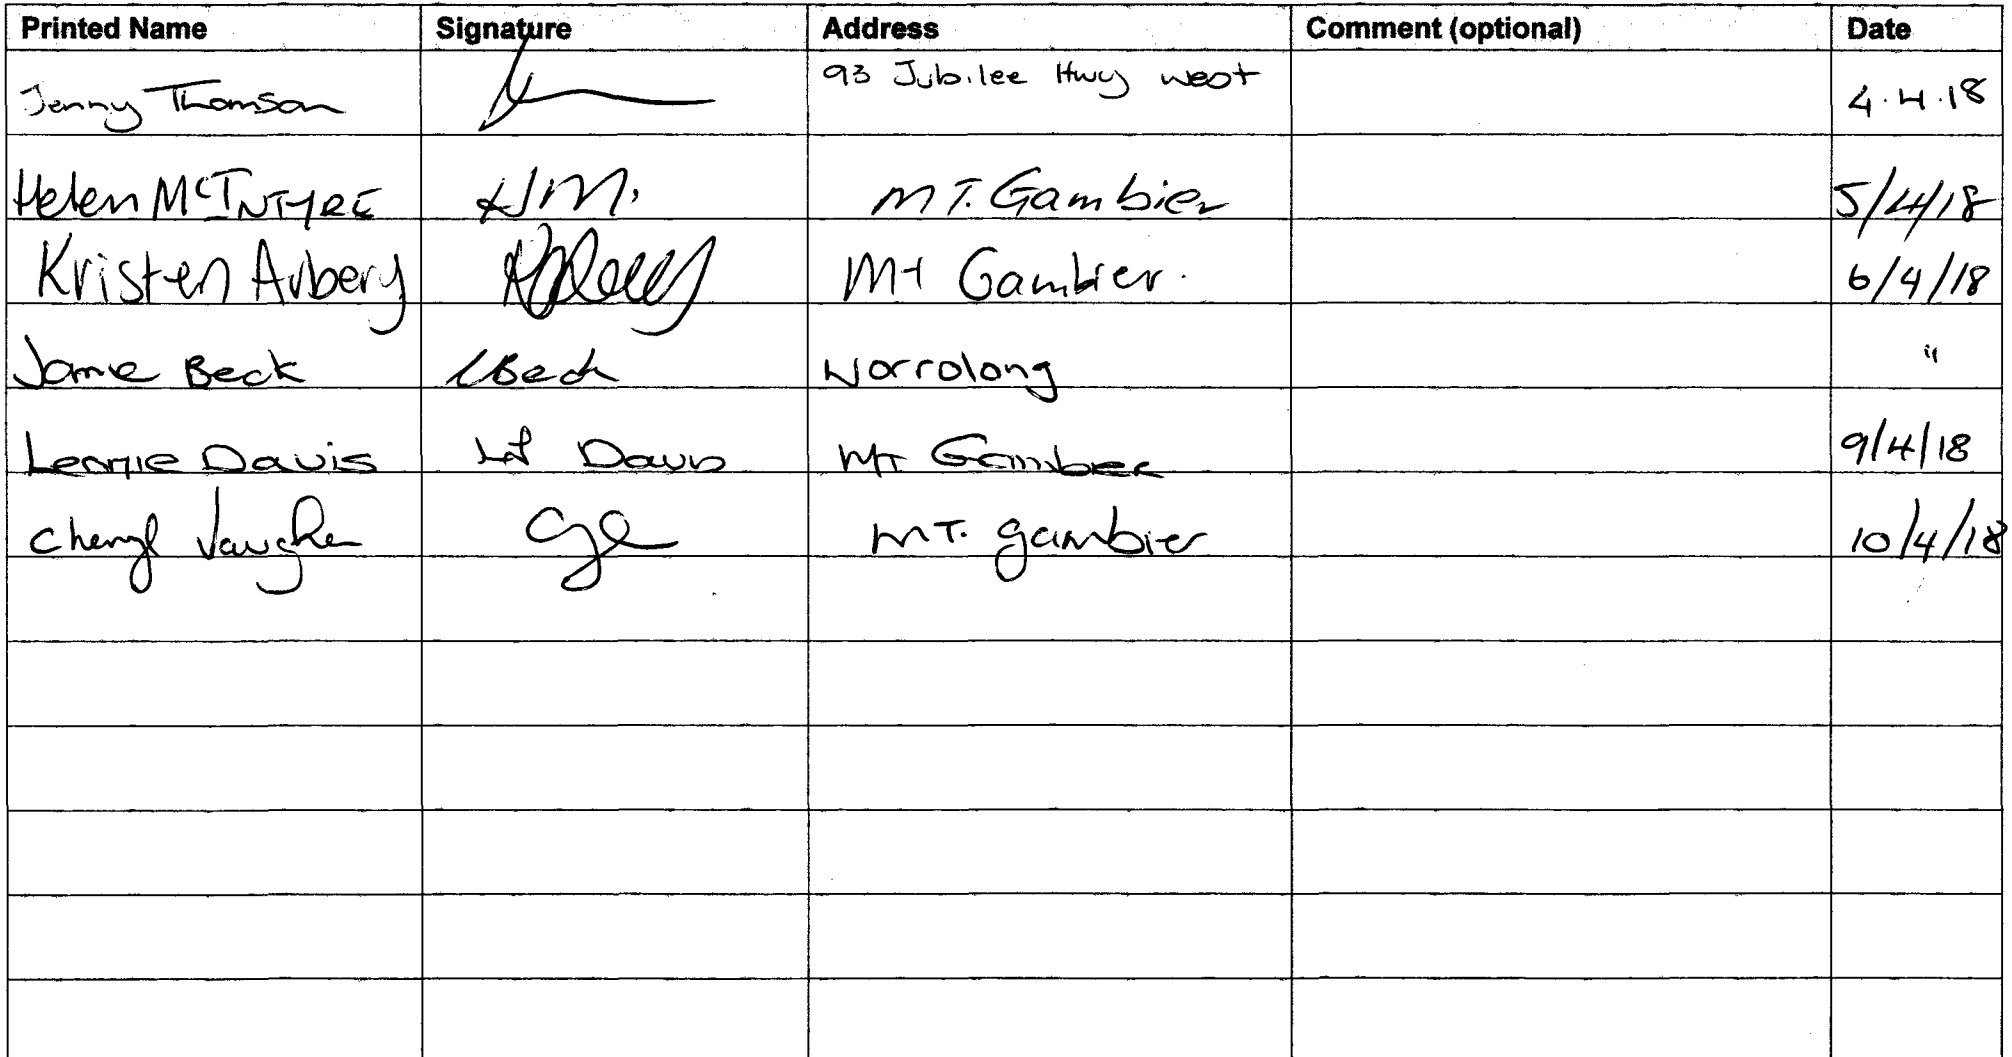 Printed Name Signature Address Comment (optional) Date
Jenny Thomson 93 Jubilee Hwy west 4.4.18
Helen McINTYRE HM. MT. Gambier 5/4/18
Kristen Aubery Mt Gambier. 6/4/18
Beck Beck Worrolong "
Davis Davis MT Gambier 9/4/18
Cheryl MT. gambier 10/4/18